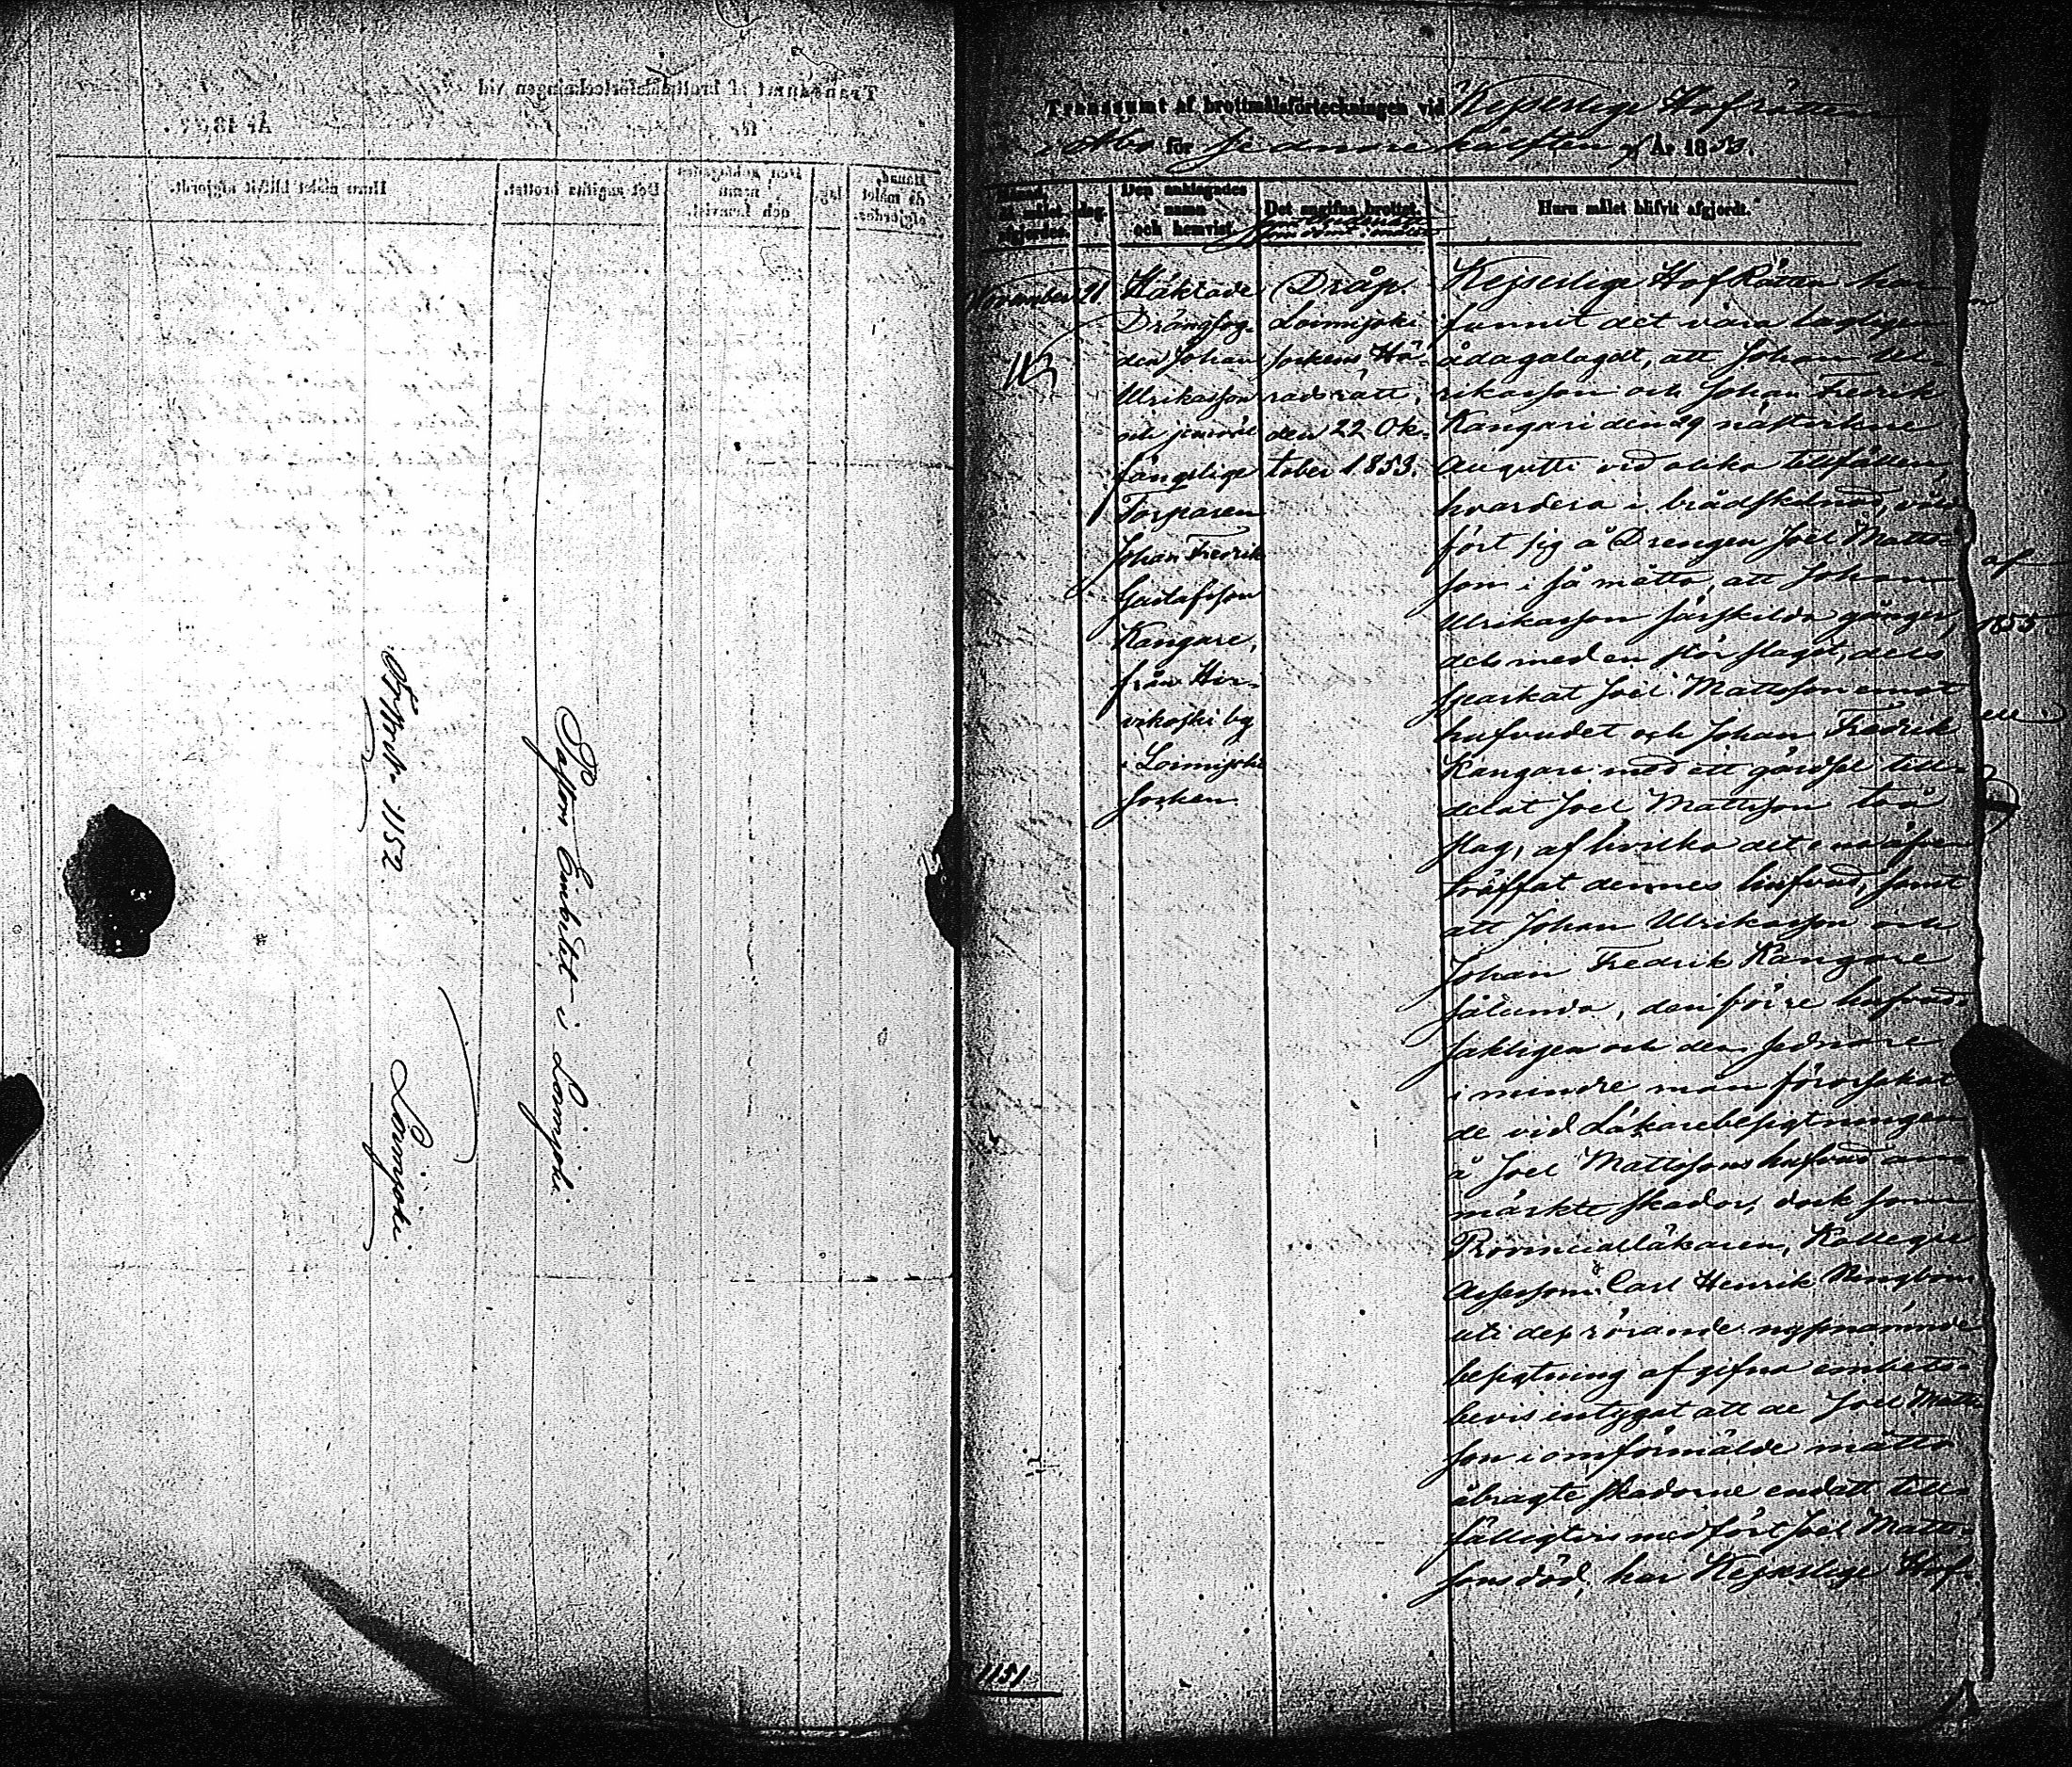 Pastors Embetet i Loimijoki.
1152. Loimijoki.
Transsumt af brottmålsförteckningen vid Kejserlige Hofrätten
i Åbo för sednare hälften af År 1853.
Månad, då målet afgjordes.
dag.
Den anklagades namn och hemvist.
Det angifna brottet.
Huru målet blifvit afgjordt.
November 21
Häktade
Drängfog-
den Johan
Ulriksson
och jemväl
fängslige
Torparen
Johan Fredrik
Gustafsson
Kangare,
från Hir-
vikoski by
i Loimijoki
socken.
Dråp.
Loimijoki
sockens Hä-
radsrätt,
den 22 Ok-
tober 1853.
Kejserlige HofRätten har
funnit det vara lagligen
ådagalagdt, att Johan Ul-
riksson och Johan Fredrik
Kangari den 29 nästvikne
Augusti vid olika tillfällen,
hvardera i brådskilnad,
fört sig å Drengen Joel Matts-
son i så måtto, att Johan
Ulriksson särskilda gånger,
dels med en stör slagit, dels
sparkat Joel Mattsson emot
hufvudet och Johan Fredrik
Kangare med ett gärdsel till-
delat Joel Mattsson två
slag, af hvilka det ena äfven
träffat dennes hufvud, samt
att Johan Ulriksson och
Johan Fredrik Kangare
sålunda, den förre hufvud-
sakligen och den sednare
i mindre mån förorsakat
de vid Läkarebesigtningen
å Joel Mattssons hufvud an-
märkte skador, dock som
Provincialläkaren, Kollegii
Assessorn Carl Henrik Ringbom
uti des rörande nyssnämnde
besigtning afgifna embets-
bevis intygat att de Joel Matts-
son i omförmälde måtto
åbragte skadorne endast till-
fälligtvis medfört Joel Matts-
sons död, har Kejserlige Hof-
1151
af
1853